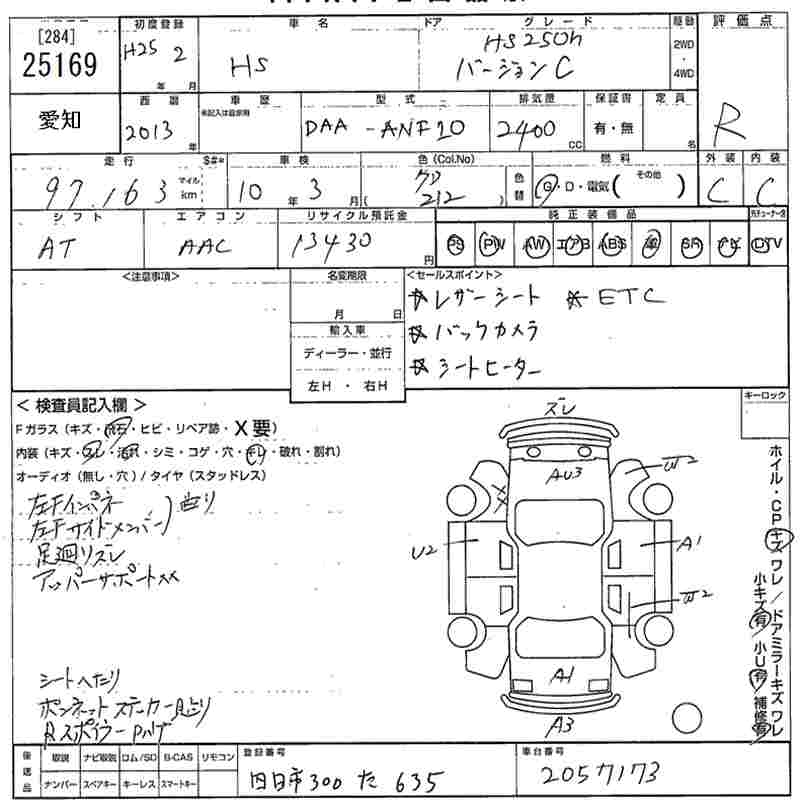 [284]
25169
愛知
初度登録
H25 2
年 月
車名
HS
ドア
グレード
HS250h
バージョンC
駆動
2WD
・
4WD
評価点
R
西暦
2013
年
車歴
未記入は自家用
型式
DAA-ANF10
排気量
2400
CC
保証書
有・無
定員
名
走行
97,163
マイル
km
$#*
車検
10年3月
色(Col.No)
クロ
(212)
色替
燃料
G・D・電気( その他 )
外装
C
内装
C
シフト
AT
エアコン
AAC
リサイクル預託金
13430
円
純正装備品
PS PW AW エアB ABS 革 SR ナビ
TV
<注意事項>
名変期限
月 日
輸入車
ディーラー・並行
左H ・ 右H
<セールスポイント>
☆レザーシート ☆ETC
☆バックカメラ
☆シートヒーター
キーロック
<検査員記入欄>
Fガラス(キズ・飛石・ヒビ・リペア跡・X要)
内装(キズ・スレ・汚れ・シミ・コゲ・穴・キレ・破れ・割れ)
オーディオ(無し・穴)/タイヤ(スタッドレス)
左Fインパネ
左Fサイドメンバー)曲り
足廻りズレ
アッパーサポートXX
シートへたり
ボンネットステーカー曲り
Rスポイラーハゲ
ズレ
AU3
XX
W2
U2
A1
W2
A1
A3
ホイル・CPキズワレ/ドアミラーキズワレ
小キズ有 小U有 補修有
後送品
取説 ナビ取説 ロム/SD B-CAS リモコン
ナンバー スペアキー キーレス スマートキー
登録番号
四日市300た635
車台番号
2057173